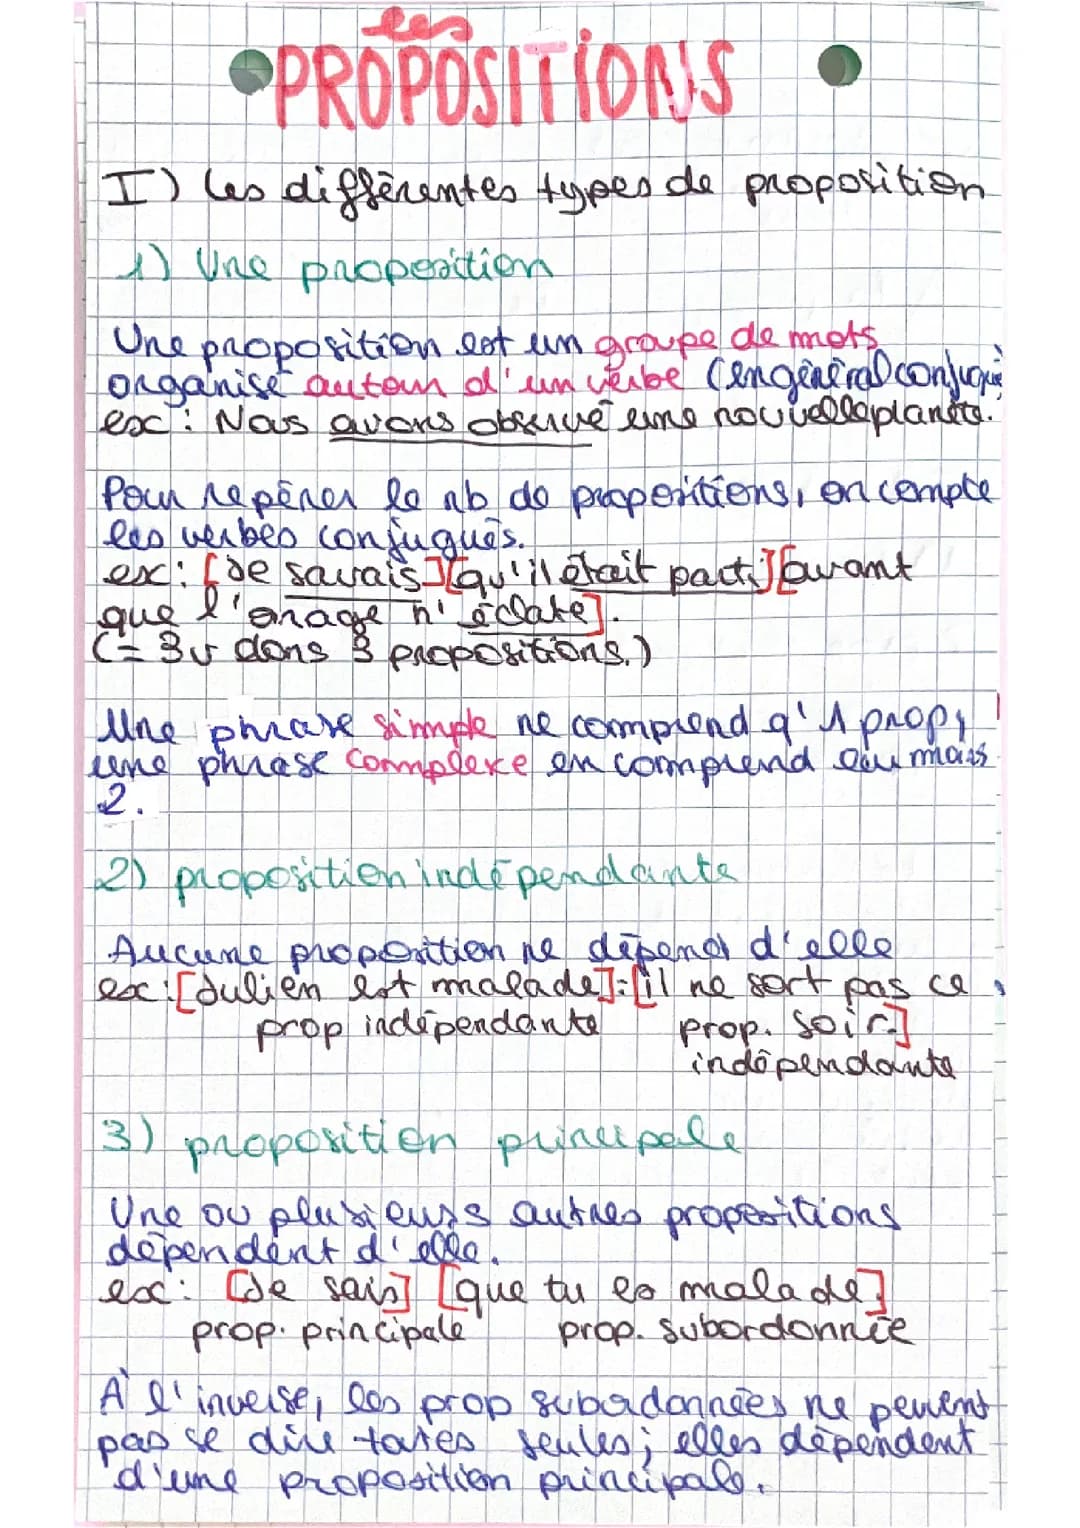 les
PROPOSITIONS
I) les différentes types de proposition
1) Une proposition
Une proposition est un groupe de mots
organisé autour d'un verbe (en général conjugué
ex : Nous avons observé une nouvelle planète.
Pour repérer le nb de propositions, on compte
les verbes conjugués.
ex : [Je savais][qu'il était parti][avant
que l'orage n'éclate].
(= 3v dans 3 propositions.)
Une phrase simple ne comprend q' 1 prop,
une phrase complexe en comprend au mois
2.
2) proposition indépendante
Aucune proposition ne dépend d'elle
ex : [Julien est malade] : [il ne sort pas ce
prop indépendante prop. soir.]
indépendante
3) proposition principale
Une ou plusieurs autres propositions
dépendent d'elle.
ex : [Je sais] [que tu es malade]
prop. principale prop. subordonnée
À l'inverse, les prop subordonnées ne peuvent
pas se dire toutes seules ; elles dépendent
d'une proposition principale.